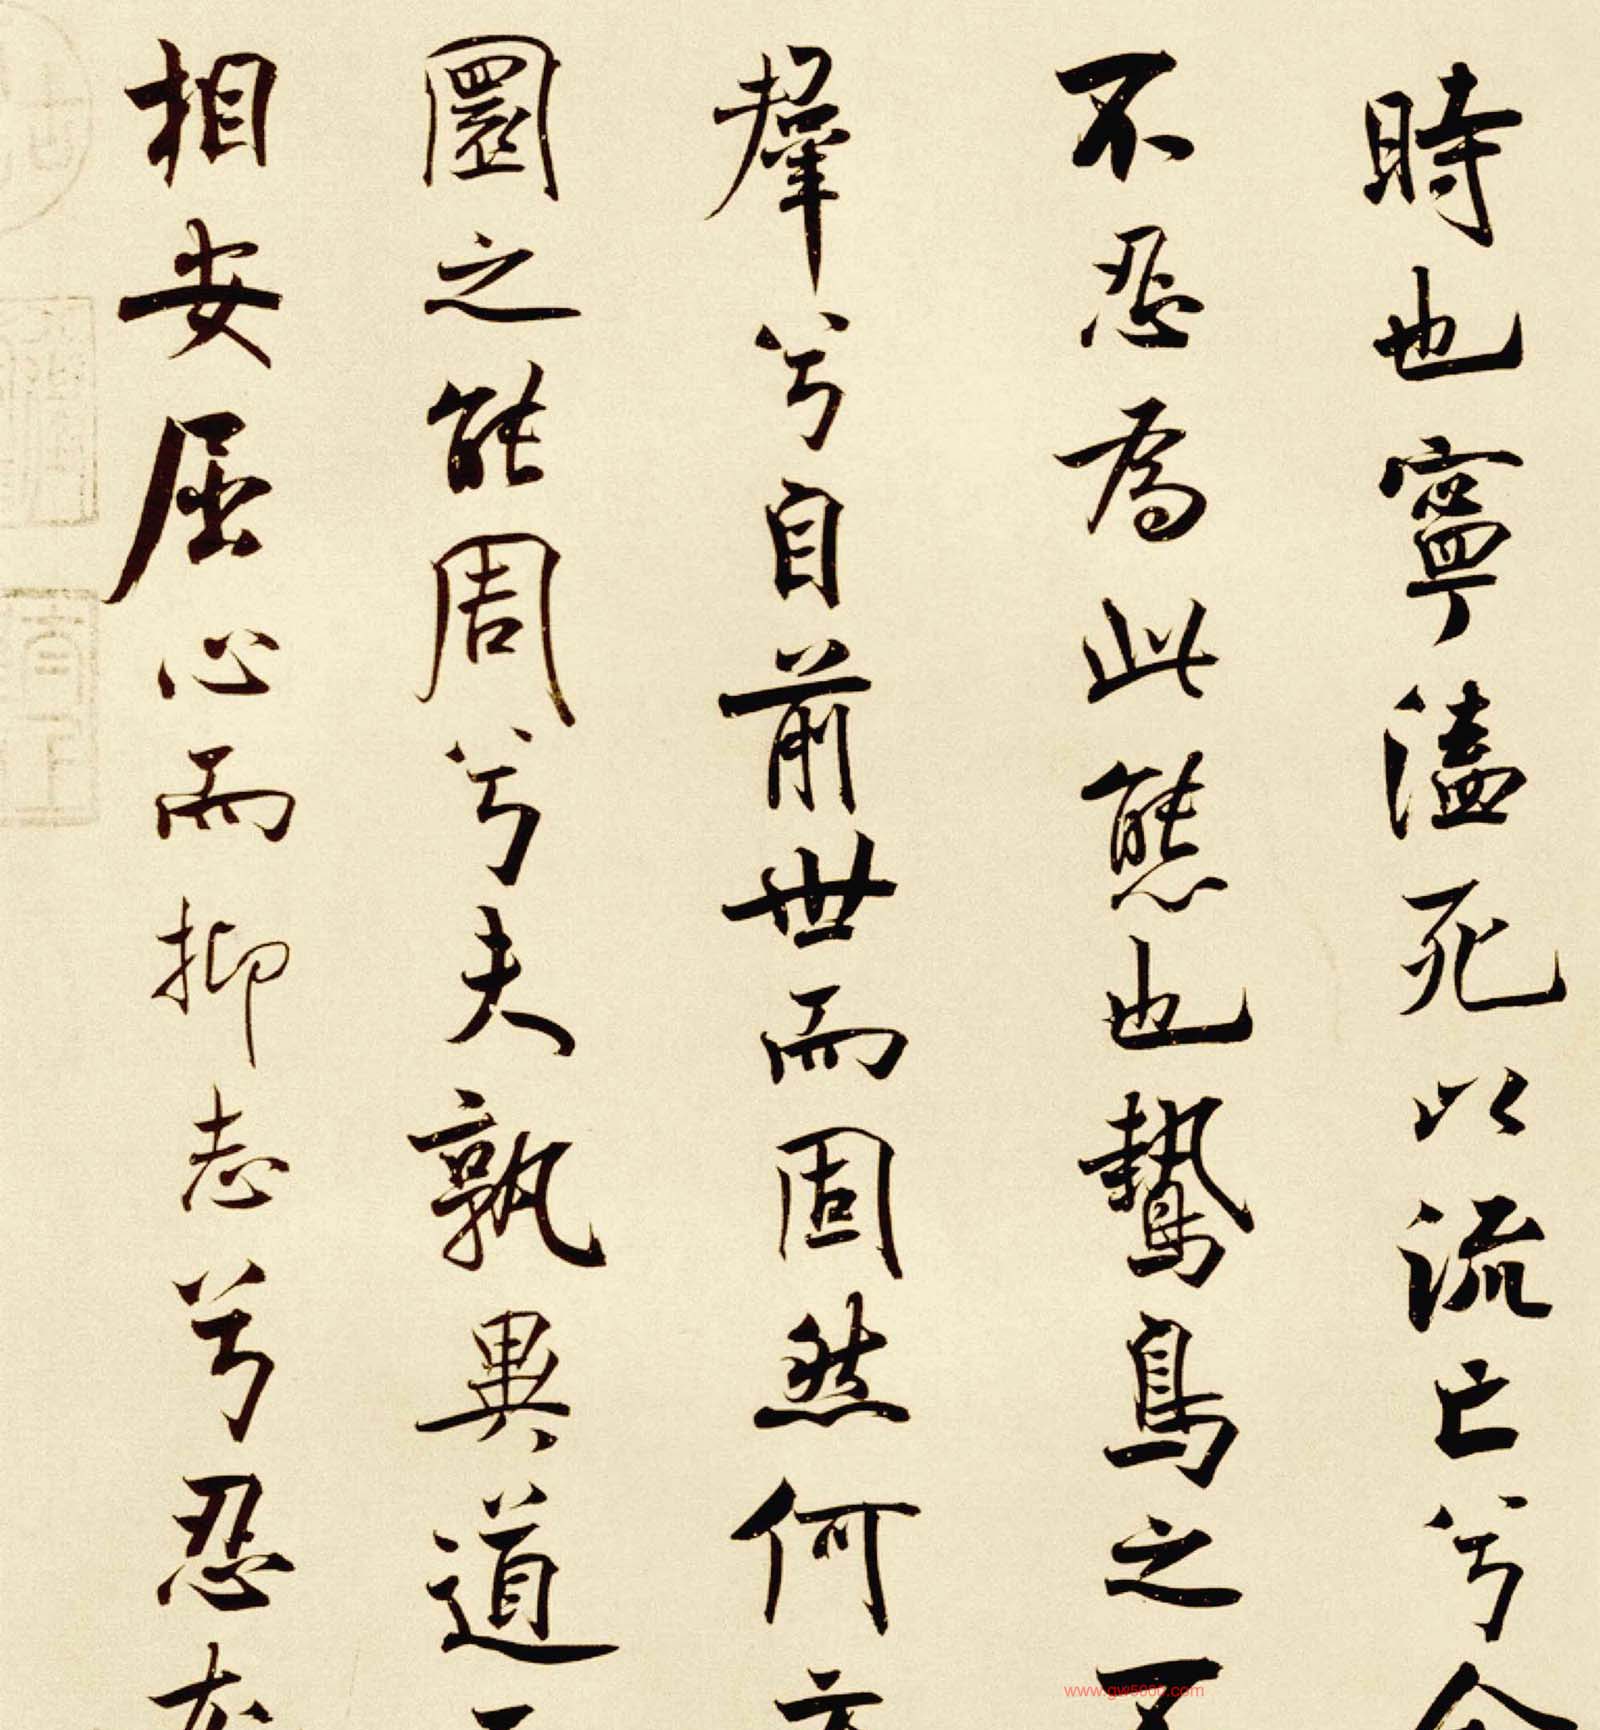 時也寧溘死以流亡兮余
不忍為此態也鷙鳥之不
羣兮自前世而固然何方
圜之能周兮夫孰異道
相安屈心而抑志兮忍尤
www.gw5000.com